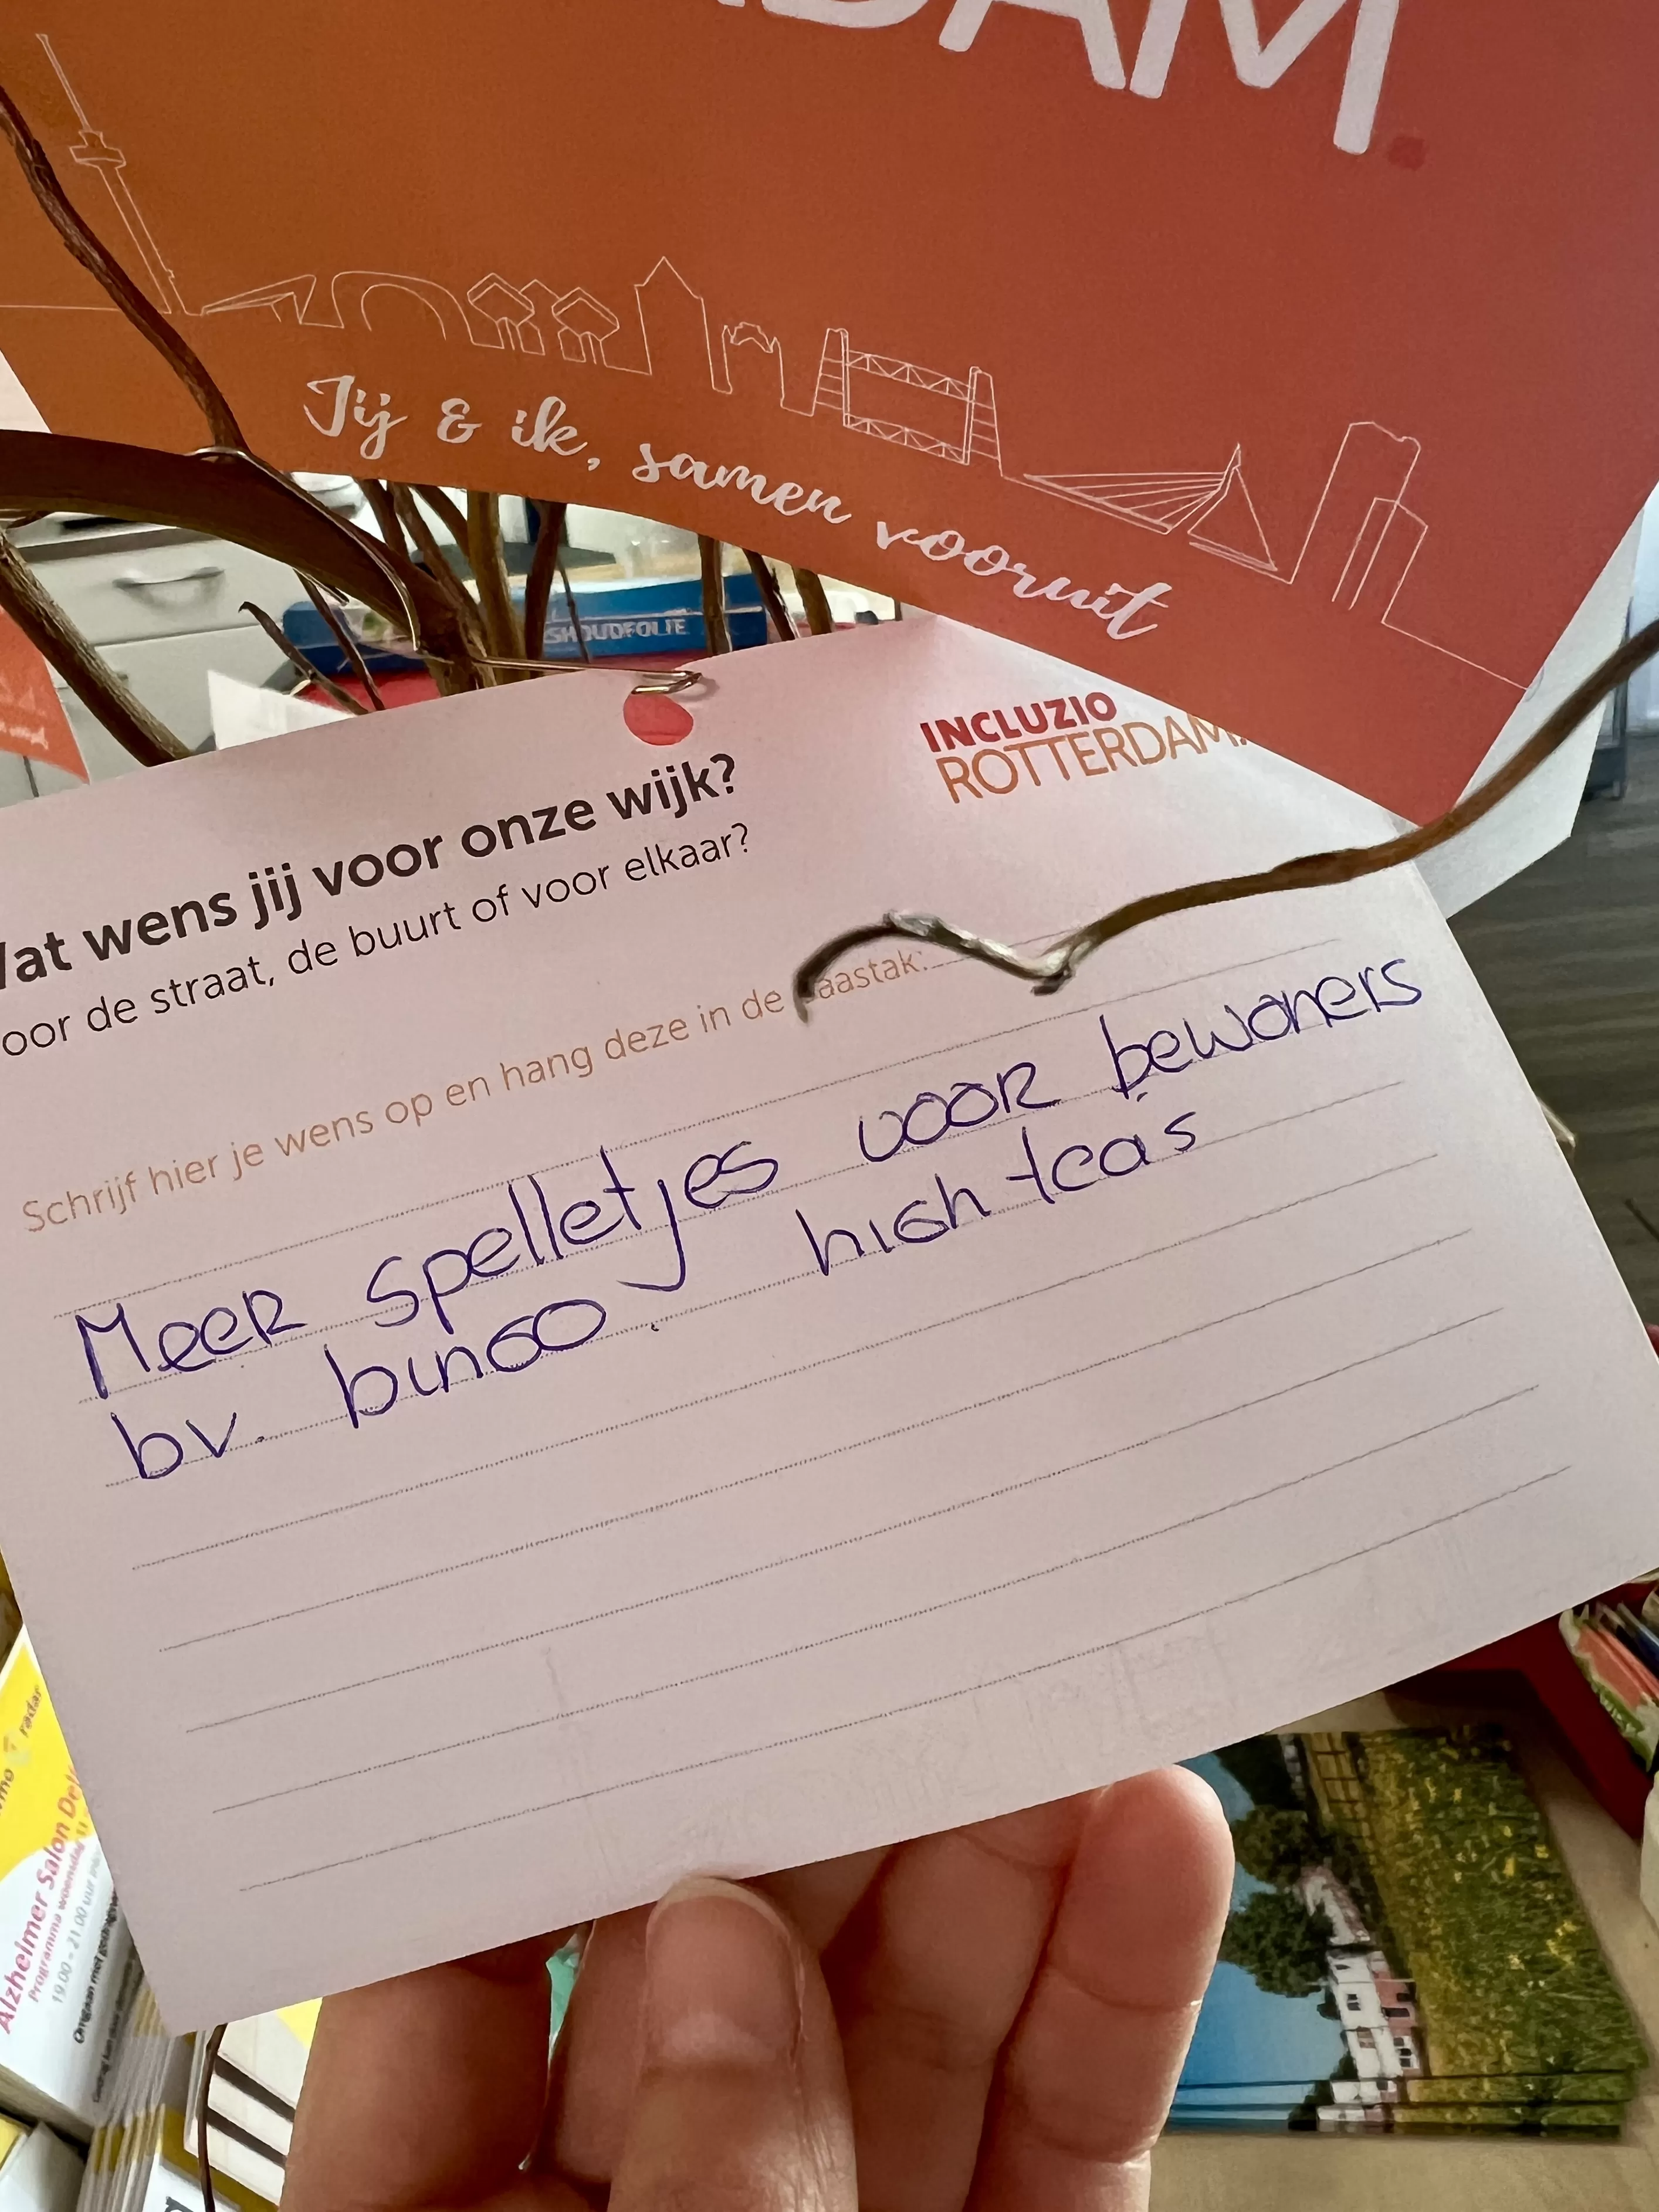 DAM.
Jij & ik, samen vooruit
SHOUDFOLIE
INCLUZIO
ROTTERDAM.
Wat wens jij voor onze wijk?
oor de straat, de buurt of voor elkaar?
Schrijf hier je wens op en hang deze in de paastak:
Meer spelletjes voor bewoners
bv. bingo. high tea's
radar
Alzheimer Salon Del
Programma woensdag 11
19.00 - 21.00 uur
Omgaan met